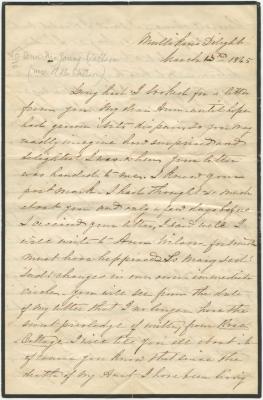 Mullikin's Delight
March 15th 1865
Long had I looked for a letter
from you My dear Annie until hope
had given into despair, so you may
easily imagine how surprised and
delighted I was when your letter
was handed to me. I knew your
post mark. I had thought so much
about you and only a few days before
I received your letter, I said well I
will write to Annie Wilson, for
must have happened. So many sad
sad changes in our own immediate
circle. you will see from the date
of my letter that I no longer have the
sweet privilege of writing from Rose
Cottage I will tell you all about it
of course you know that since the
death of my Aunt I have been living